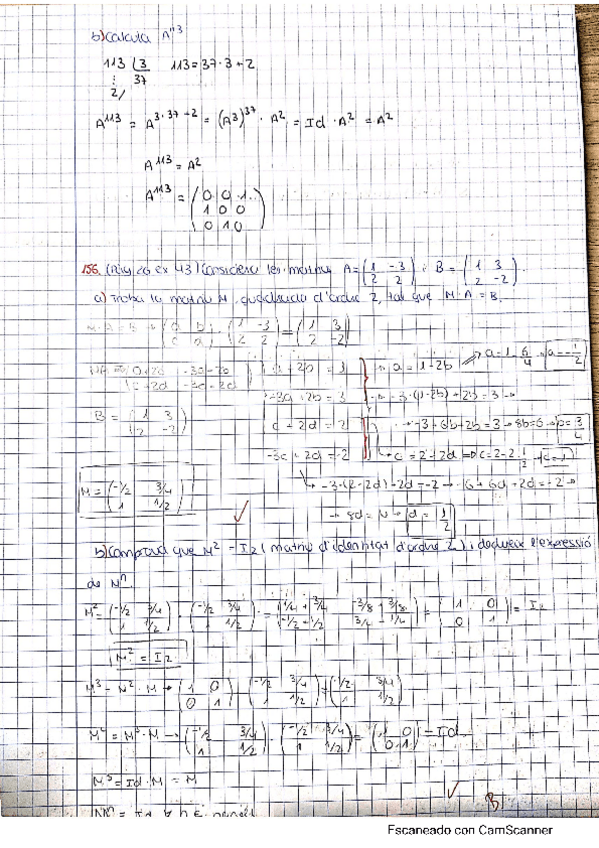 b) Calcula A¹¹³
113 | 3    113 = 37·3 + 2
⋮ 37
2
A¹¹³ = A^(3·37+2) = (A³)³⁷ · A² = Id · A² = A²
A¹¹³ = A²
A¹¹³ = (0 0 1
1 0 0
0 1 0)
156. Considera les matrius A = (1 -3; 2 2) i B = (1 3; 2 -2).
a) Troba la matriu M, quadrada d'ordre 2, tal que M·A = B.
M·A = B → (a b; c d) · (1 -3; 2 2) = (1 3; 2 -2)
a = 1-2b → a = 1 - 6/4 → a = -1/2
-3a + 2b = 3 → -3·(1-2b) + 2b = 3 →
B = (1 3; 2 -2)    c + 2d = 2    → -3+6b+2b = 3 → 8b = 6 → b = 3/4
-3c + 2d = -2    c = 2-2d → c = 2-2·1/2 → c = 1
M = (-1/2 3/4; 1 1/2)    → -3·(2-2d)+2d = -2 → -6+6d+2d = -2 →
→ 8d = 4 → d = 1/2
b) Comprova que M² = I₂ (matriu d'identitat d'ordre 2) i dedueix l'expressió
de Mⁿ
M² = (-1/2 3/4; 1 1/2) · (-1/2 3/4; 1 1/2) = (1/4 + 3/4 -3/8 + 3/8; -1/2 + 1/2 3/4 + 1/4) = (1 0; 0 1) = I₂
M² = I₂
M³ = M² · M → (1 0; 0 1) · (-1/2 3/4; 1 1/2) = (-1/2 3/4; 1 1/2)
M⁴ = M³ · M → (-1/2 3/4; 1 1/2) · (-1/2 3/4; 1 1/2) = (1 0; 0 1) = Id
M⁵ = Id · M = M
B
Escaneado con CamScanner